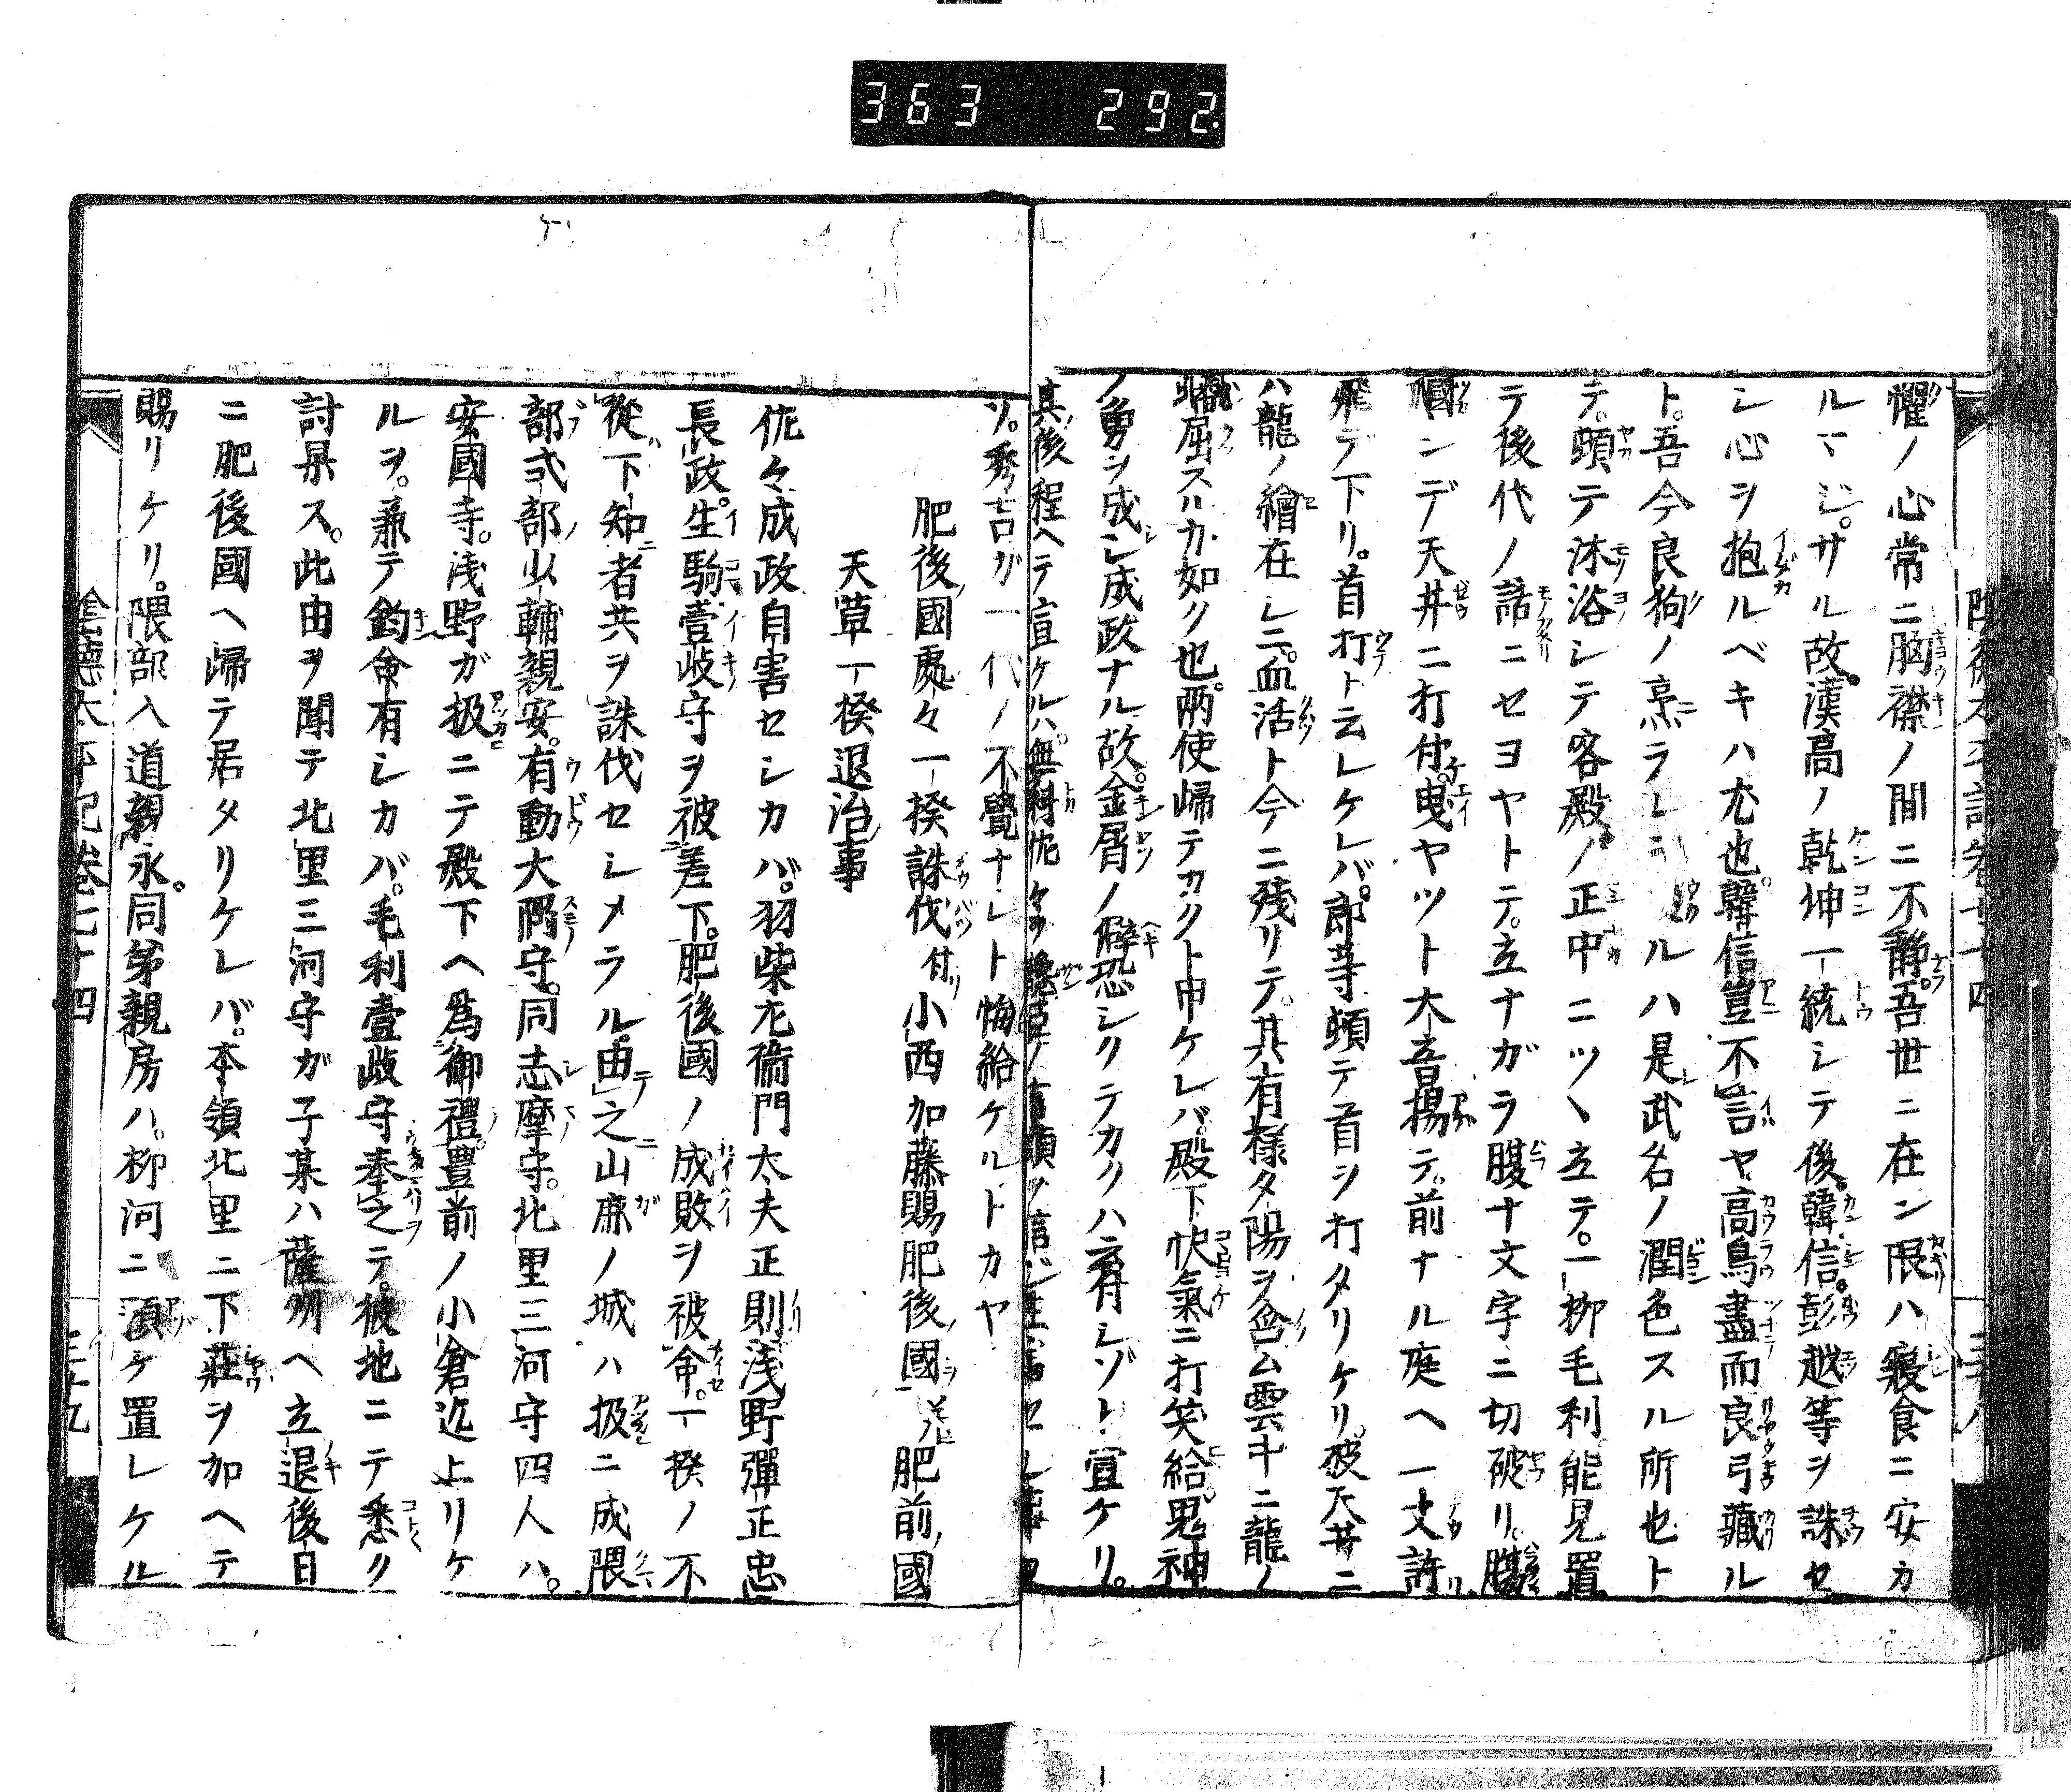 363 292
懼ノ心常ニ胸襟ノ間ニ不静。吾世ニ在ン限ハ寢食ニ安カ
ルマジ。サル故。漢高ノ乾坤一統シテ後。韓信。彭越等ヲ誅セ
シ心ヲ抱ルベキハ尤也。韓信豈不言ヤ高鳥盡而良弓藏ル
ト。吾今良狗ノ烹ラレ ルハ是武名ノ潤色スル所也ト
テ。頓テ沐浴シテ客殿ノ正中ニツヽ立テ。一柳毛利能見置
テ後代ノ話ニセヨヤトテ。立ナガラ腹十文字ニ切破リ。膓
ンデ天井ニ打付。曳ヤツト大音揚テ。前ナル庭ヘ一丈許
飛デ下リ。首打ト云レケレバ。郎等頓テ首ヲ打タリケリ。彼天井ニ
ハ龍ノ繪在シニ。血活ト今ニ殘リテ。其有樣夕陽ヲ含ム雲中ニ龍ノ
屈スルカ如ク也。兩使歸テカクト申ケレバ。殿下快氣ニ打笑給。鬼神
ノ勇ヲ成シ成政ナル故。金屑ノ癖恐シクテカクハ有シゾト宣ケリ。
其後程ヘテ宣ケルハ。無科佐々ヲ 讒臣ノ言頻ヲ信ジ生害セシ事
ソ。秀吉ガ一代ノ不覺ナレト悔給ケルトカヤ
肥後國處々一揆誅伐付小西加藤賜肥後國 肥前國
天草一揆退治事
佐々成政自害セシカバ。羽柴左衞門太夫正則淺野彈正忠
長政。生駒壹岐守ヲ被差下。肥後國ノ成敗ヲ被命。一揆ノ不
從下知者共ヲ誅伐セシメラル。由之山鹿ノ城ハ扱ニ成隈
部式部少輔親安。有動大隅守。同志摩守。北里三河守四人ハ。
安國寺。淺野ガ扱ニテ殿下ヘ爲御禮。豊前ノ小倉迄上リケ
ルヲ。兼テ鈞命有シカバ。毛利壹岐守奉之テ。彼地ニテ悉ク
討果ス。此由ヲ聞テ北里三河守ガ子某ハ薩州ヘ立退後日
ニ肥後國ヘ歸テ居タリケレバ。本領北里ニ下莊ヲ加ヘテ
賜リケリ。隈部入道親永。同弟親房ハ。柳河ニ預ケ置レケル
陰德太平記卷七十四